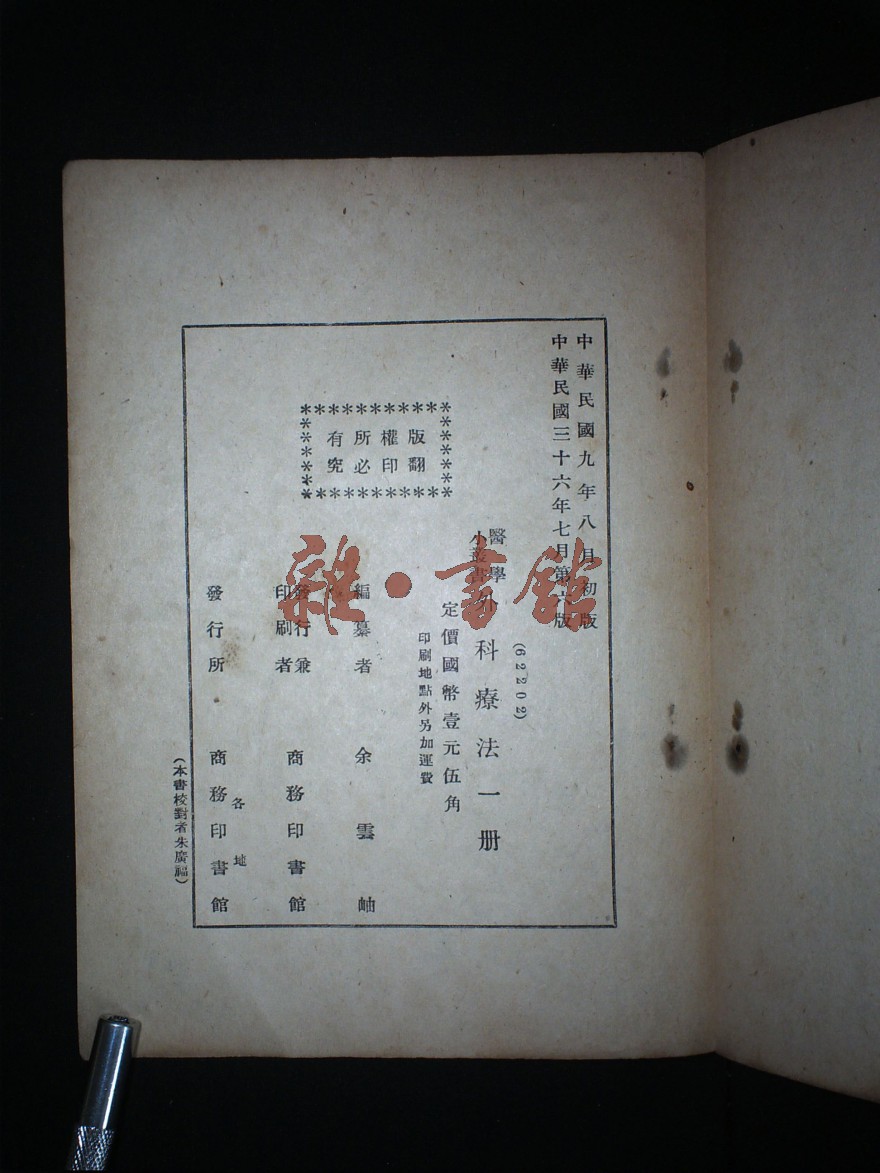 中華民國九年八月初版
中華民國三十六年七月第六版
(62202)
醫學
小叢書
外科療法一册
定價國幣壹元伍角
印刷地點外另加運費
版權所有
翻印必究
編纂者 余雲岫
發行兼
印刷者 商務印書館
各地
發行所 商務印書館
(本書校對者朱廣福)
雜·書館